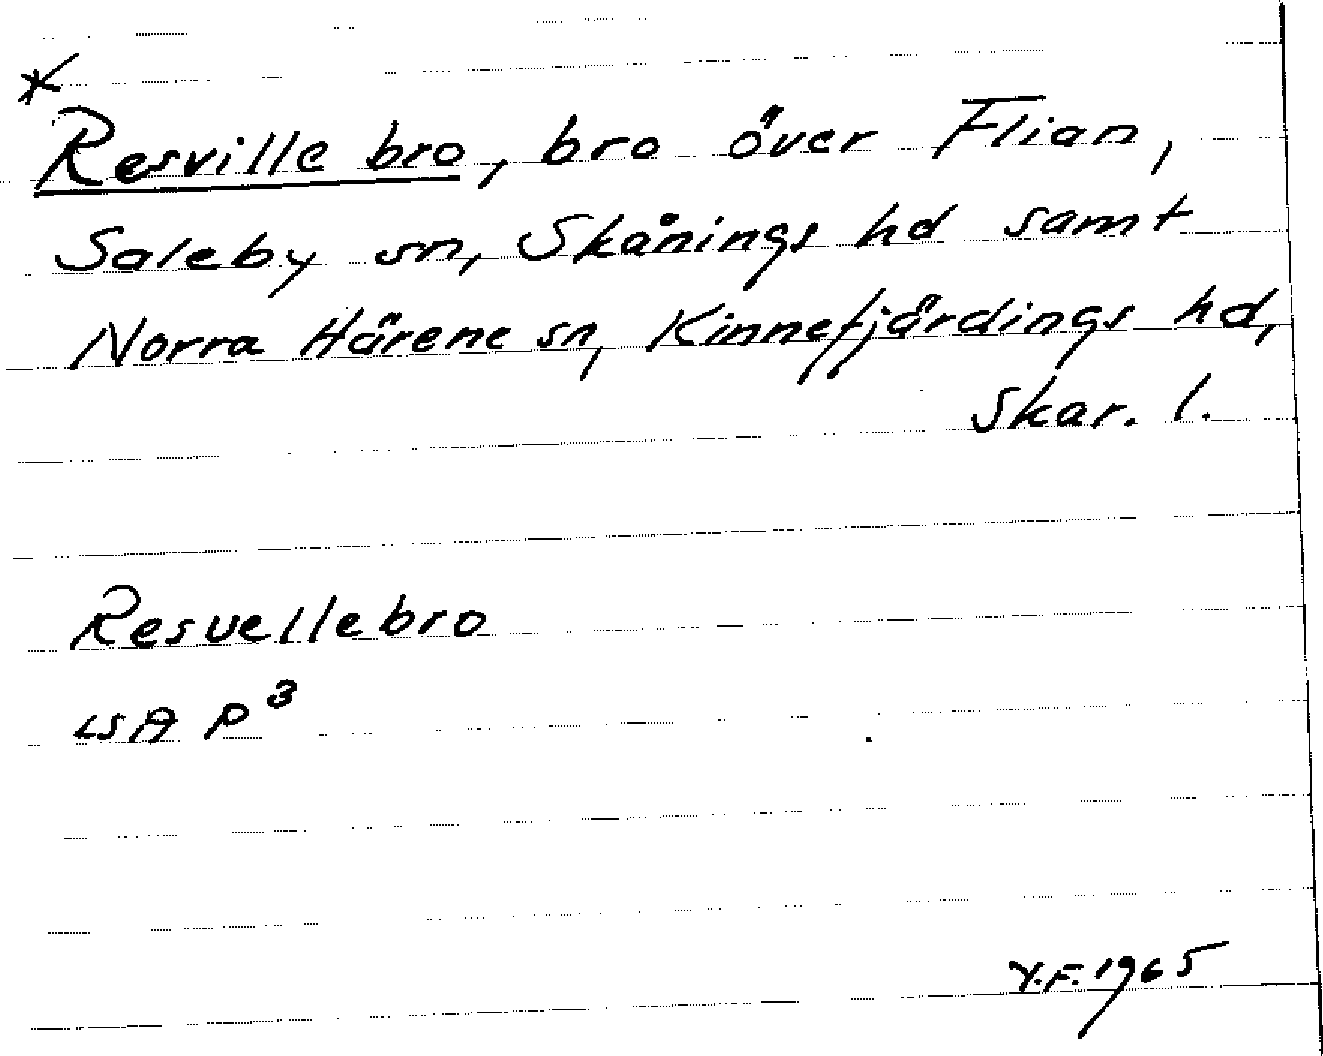 *
Resville bro, bro över Flian,
Saleby sn, Skånings hd samt
Norra Härene sn, Kinnefjärdings hd,
Skar. l.
Resvellebro
LSA P³
Y.F. 1965